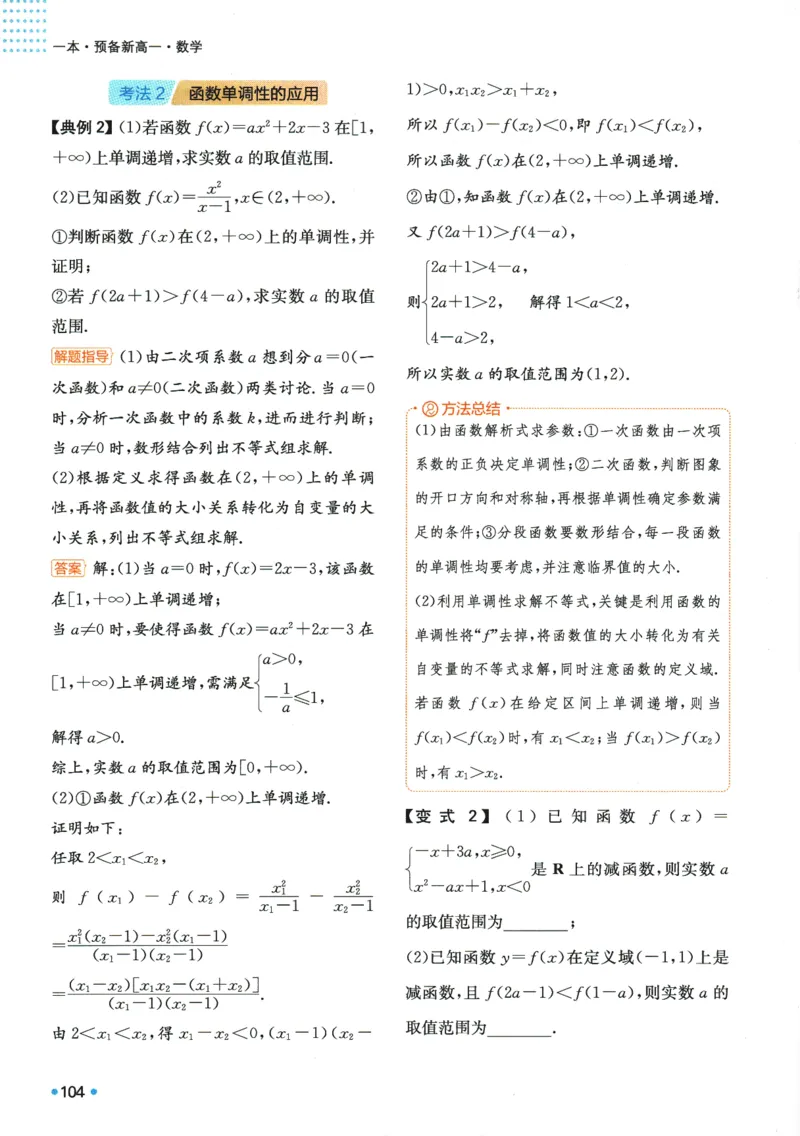 一本·预备新高一·数学
考法2 函数单调性的应用
【典例2】(1)若函数 f(x)=ax²+2x-3在[1,
+∞)上单调递增,求实数a的取值范围.
(2)已知函数 f(x)=x²/(x-1),x∈(2,+∞).
①判断函数 f(x)在(2,+∞)上的单调性,并
证明;
②若 f(2a+1)>f(4-a),求实数 a 的取值
范围.
解题指导 (1)由二次项系数a想到分a=0(一
次函数)和a≠0(二次函数)两类讨论.当 a=0
时,分析一次函数中的系数k,进而进行判断;
当a≠0时,数形结合列出不等式组求解.
(2)根据定义求得函数在(2,+∞)上的单调
性,再将函数值的大小关系转化为自变量的大
小关系,列出不等式组求解.
答案 解:(1)当a=0时,f(x)=2x-3,该函数
在[1,+∞)上单调递增;
当a≠0时,要使得函数 f(x)=ax²+2x-3在
[1,+∞)上单调递增,需满足{a>0, -1/a≤1,
解得a>0.
综上,实数a的取值范围为[0,+∞).
(2)①函数 f(x)在(2,+∞)上单调递增.
证明如下:
任取2<x₁<x₂,
则 f(x₁)-f(x₂)=x₁²/(x₁-1)-x₂²/(x₂-1)
=[x₁²(x₂-1)-x₂²(x₁-1)]/[(x₁-1)(x₂-1)]
=(x₁-x₂)[x₁x₂-(x₁+x₂)]/[(x₁-1)(x₂-1)].
由2<x₁<x₂,得 x₁-x₂<0,(x₁-1)(x₂-
1)>0,x₁x₂>x₁+x₂,
所以 f(x₁)-f(x₂)<0,即 f(x₁)<f(x₂),
所以函数 f(x)在(2,+∞)上单调递增.
②由①,知函数 f(x)在(2,+∞)上单调递增.
又 f(2a+1)>f(4-a),
则{2a+1>4-a, 2a+1>2, 4-a>2, 解得1<a<2,
所以实数a的取值范围为(1,2).
方法总结
(1)由函数解析式求参数:①一次函数由一次项
系数的正负决定单调性;②二次函数,判断图象
的开口方向和对称轴,再根据单调性确定参数满
足的条件;③分段函数要数形结合,每一段函数
的单调性均要考虑,并注意临界值的大小.
(2)利用单调性求解不等式,关键是利用函数的
单调性将“f”去掉,将函数值的大小转化为有关
自变量的不等式求解,同时注意函数的定义域.
若函数 f(x)在给定区间上单调递增,则当
f(x₁)<f(x₂)时,有 x₁<x₂;当 f(x₁)>f(x₂)
时,有x₁>x₂.
【变式2】(1)已知函数 f(x)=
{-x+3a,x≥0, x²-ax+1,x<0 是R上的减函数,则实数a
的取值范围为________;
(2)已知函数 y=f(x)在定义域(-1,1)上是
减函数,且 f(2a-1)<f(1-a),则实数 a 的
取值范围为________.
104